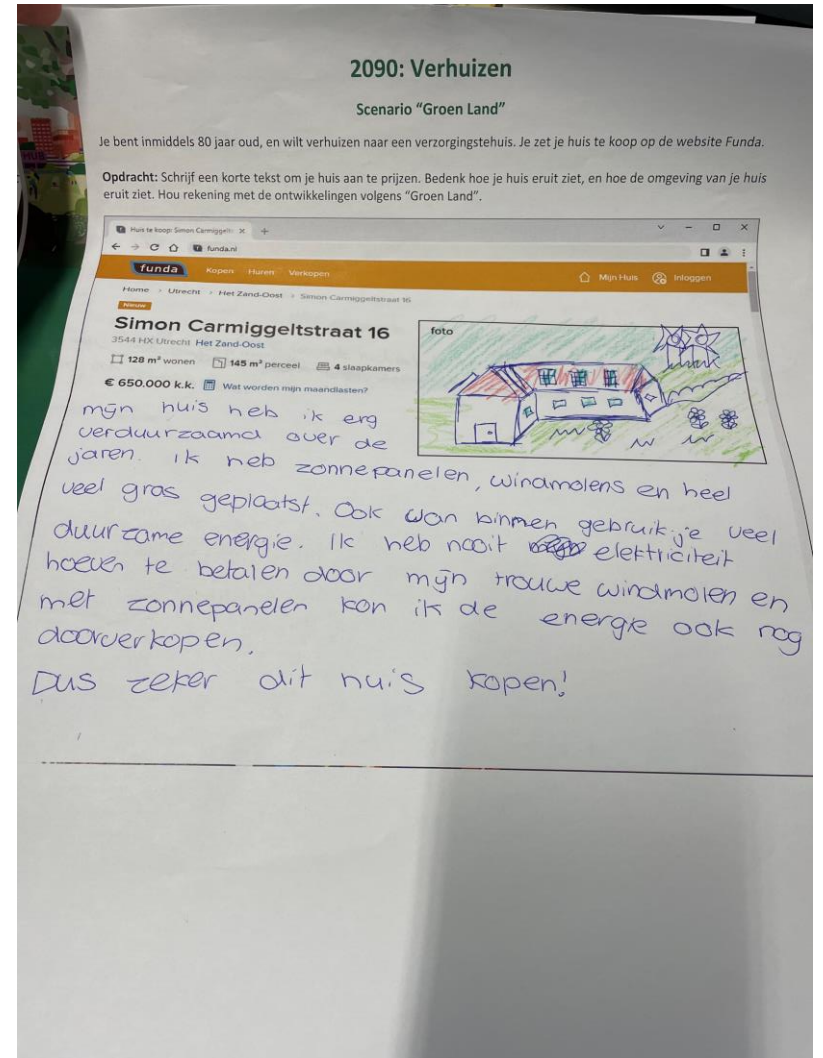 2090: Verhuizen
Scenario "Groen Land"
Je bent inmiddels 80 jaar oud, en wilt verhuizen naar een verzorgingstehuis. Je zet je huis te koop op de website Funda.
Opdracht: Schrijf een korte tekst om je huis aan te prijzen. Bedenk hoe je huis eruit ziet, en hoe de omgeving van je huis
eruit ziet. Hou rekening met de ontwikkelingen volgens "Groen Land".
Huis te koop: Simon Carmiggelts
funda.nl
funda Kopen Huren Verkopen Mijn Huis Inloggen
Home > Utrecht > Het Zand-Oost > Simon Carmiggeltstraat 16
Nieuw
Simon Carmiggeltstraat 16
3544 HX Utrecht Het Zand-Oost
128 m² wonen 145 m² perceel 4 slaapkamers
€ 650.000 k.k. Wat worden mijn maandlasten?
foto
mijn huis heb ik erg
verduurzaamd over de
jaren. ik heb zonnepanelen, windmolens en heel
veel gras geplaatst. Ook van binnen gebruik je veel
duurzame energie. Ik heb nooit elektriciteit
hoeven te betalen door mijn trouwe windmolen en
met zonnepanelen kon ik de energie ook nog
doorverkopen.
Dus zeker dit huis kopen!